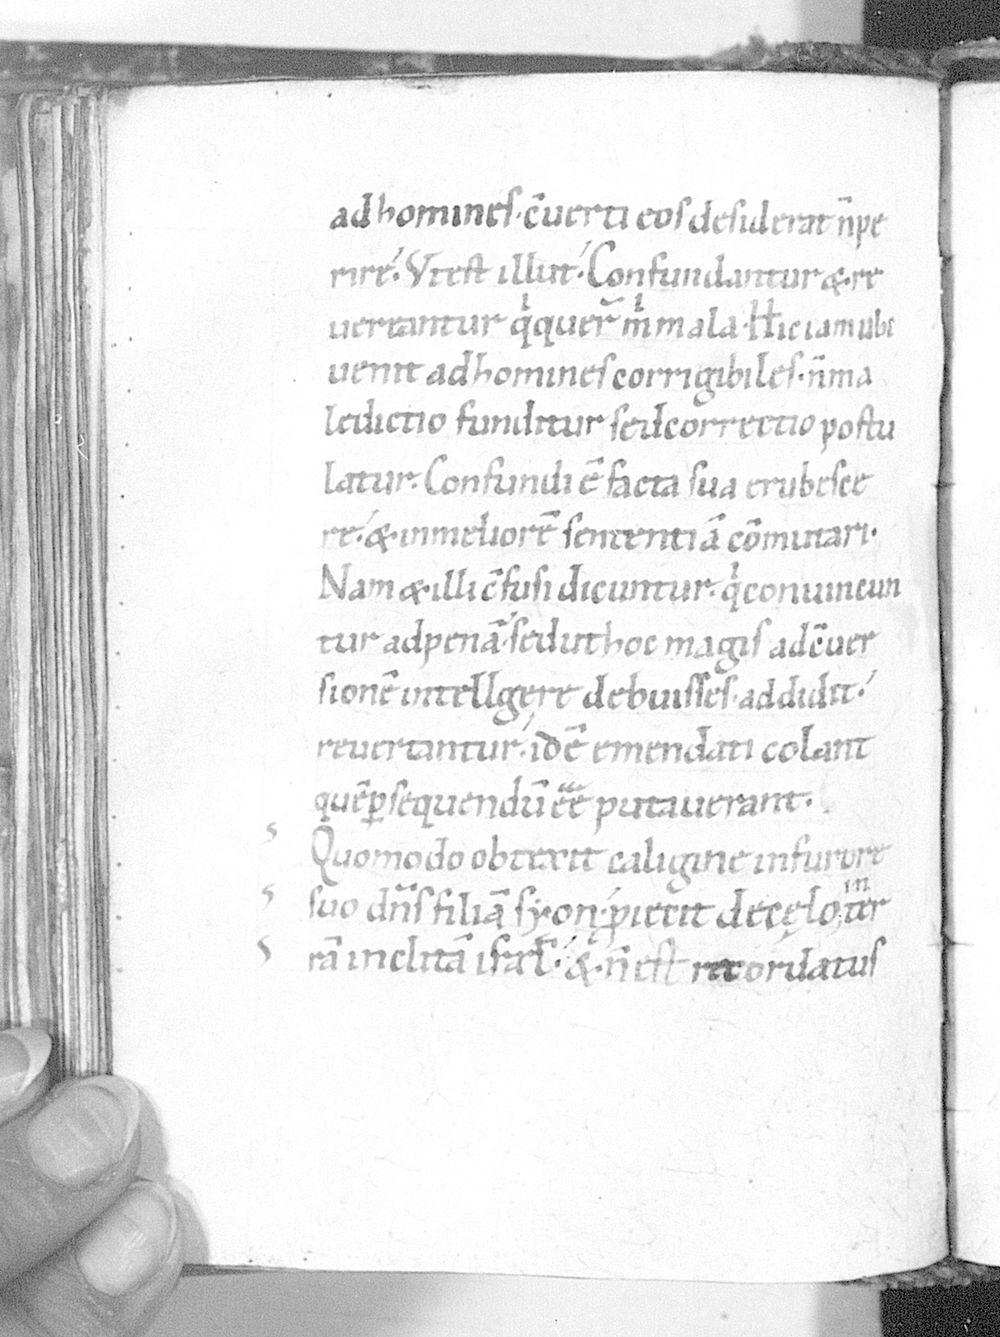 ad homines. c̄uerti eos desiderat n̄ pe
rire. Vt est illut. Confundantur & re
uertantur qͥ querͫ mͥ mala. Hic iam ubi
uenit ad homines corrigibiles. n̄ ma
ledictio funditur sed correctio postu
latur. Confundi ē facta sua erubesce
re. & in meliorē sententiā cōmutari.
Nam & illi c̄fusi dicuntur. qͥ conuincun
tur ad penā. sed ut hoc magis ad c̄uer
sionē intellgere debuisses. addidit.
reuertantur. id ē emendati colant
quē ꝑsequendū ēē putauerant.
Quomodo obtexit caligine in furore
suo dn̄s filiā syon. piecit de cęlo in ter
rā inclitā isrł. & n̄ est recordatus